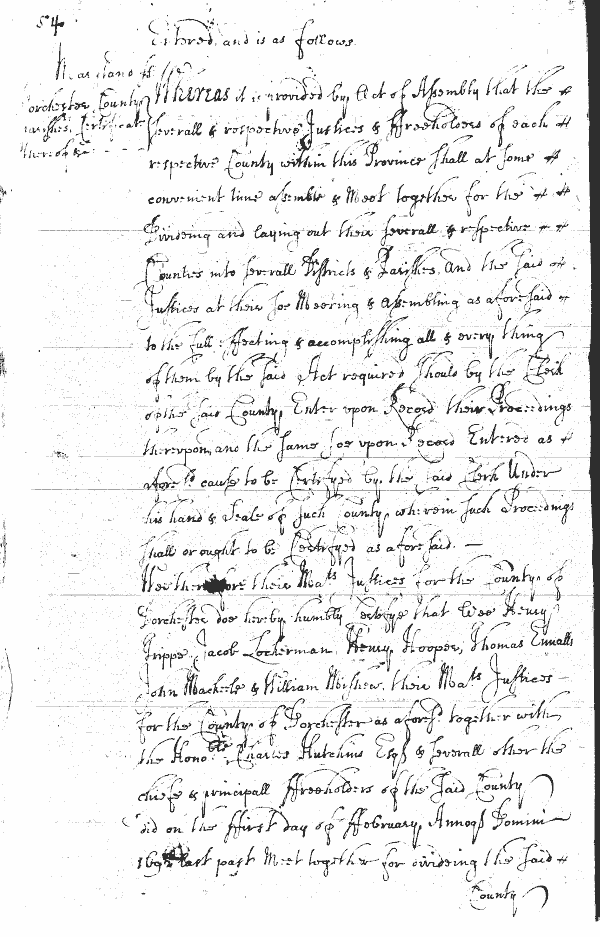 54
Entered and is as follows
Dorchester County
parishes, Certificate
thereof &c
Whereas it is provided by Act of Assembly that the
severall & respective Justices & ffreeholders of each
respective County within this Province shall at some
convenient time assemble & Meet together for the
Divideing and laying out their severall & respective
Counties into severall Districts & Parishes, And the said
Justices at their soe Meeting & Assembling as aforesaid
to the full effecting & accomplishing all & every thing
of them by the said Act required should by the Clerk
of the said County, Enter upon Record their Proceedings
thereupon, and the same soe upon Record Entered as
afores:d cause to be Certifyed by the said Clerk Under
his hand & Seale of such County wherein such Proceedings
shall or ought to be Certifyed as aforesaid. —
Wee therefore their Ma:ts Justices for the County of
Dorchester doe hereby humbly Certifye that Wee Henry
Trippe, Jacob Lockerman, Henry Hooper, Thomas Ennalls
John Mackeele & William Mishew, their Ma:ts Justices
for the County of Dorchester as afores:d together with
the Hono:ble Charles Hutchins Esq:r & severall other the
chiefe & principall ffreeholders of the said County
did on the ffirst day of ffebruary Annoq Domini
169 last past Meet together for divideing the said
County